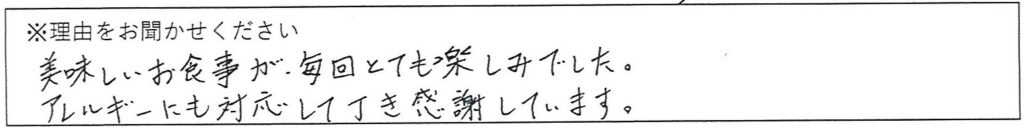 ※理由をお聞かせください
美味しいお食事が、毎回とても楽しみでした。
アレルギーにも対応して丁き感謝しています。